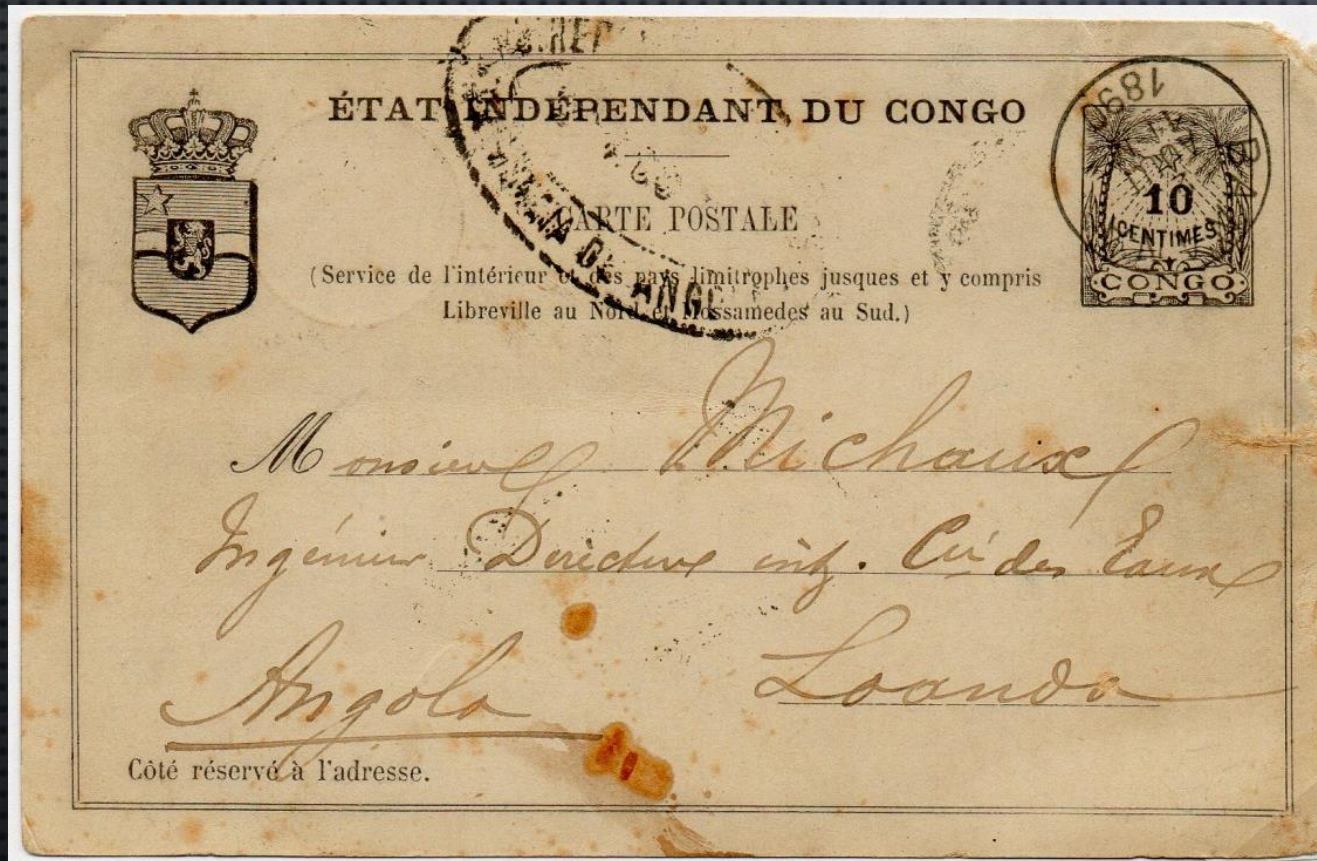 ÉTAT INDÉPENDANT DU CONGO
CARTE POSTALE
(Service de l'intérieur et des pays limitrophes jusques et y compris
Libreville au Nord et Mossamedes au Sud.)
1890
10
CENTIMES
CONGO
Monsieur Michaux
Ingénieur Directeur Cie des Eaux
Loanda
Angola
Côté réservé à l'adresse.